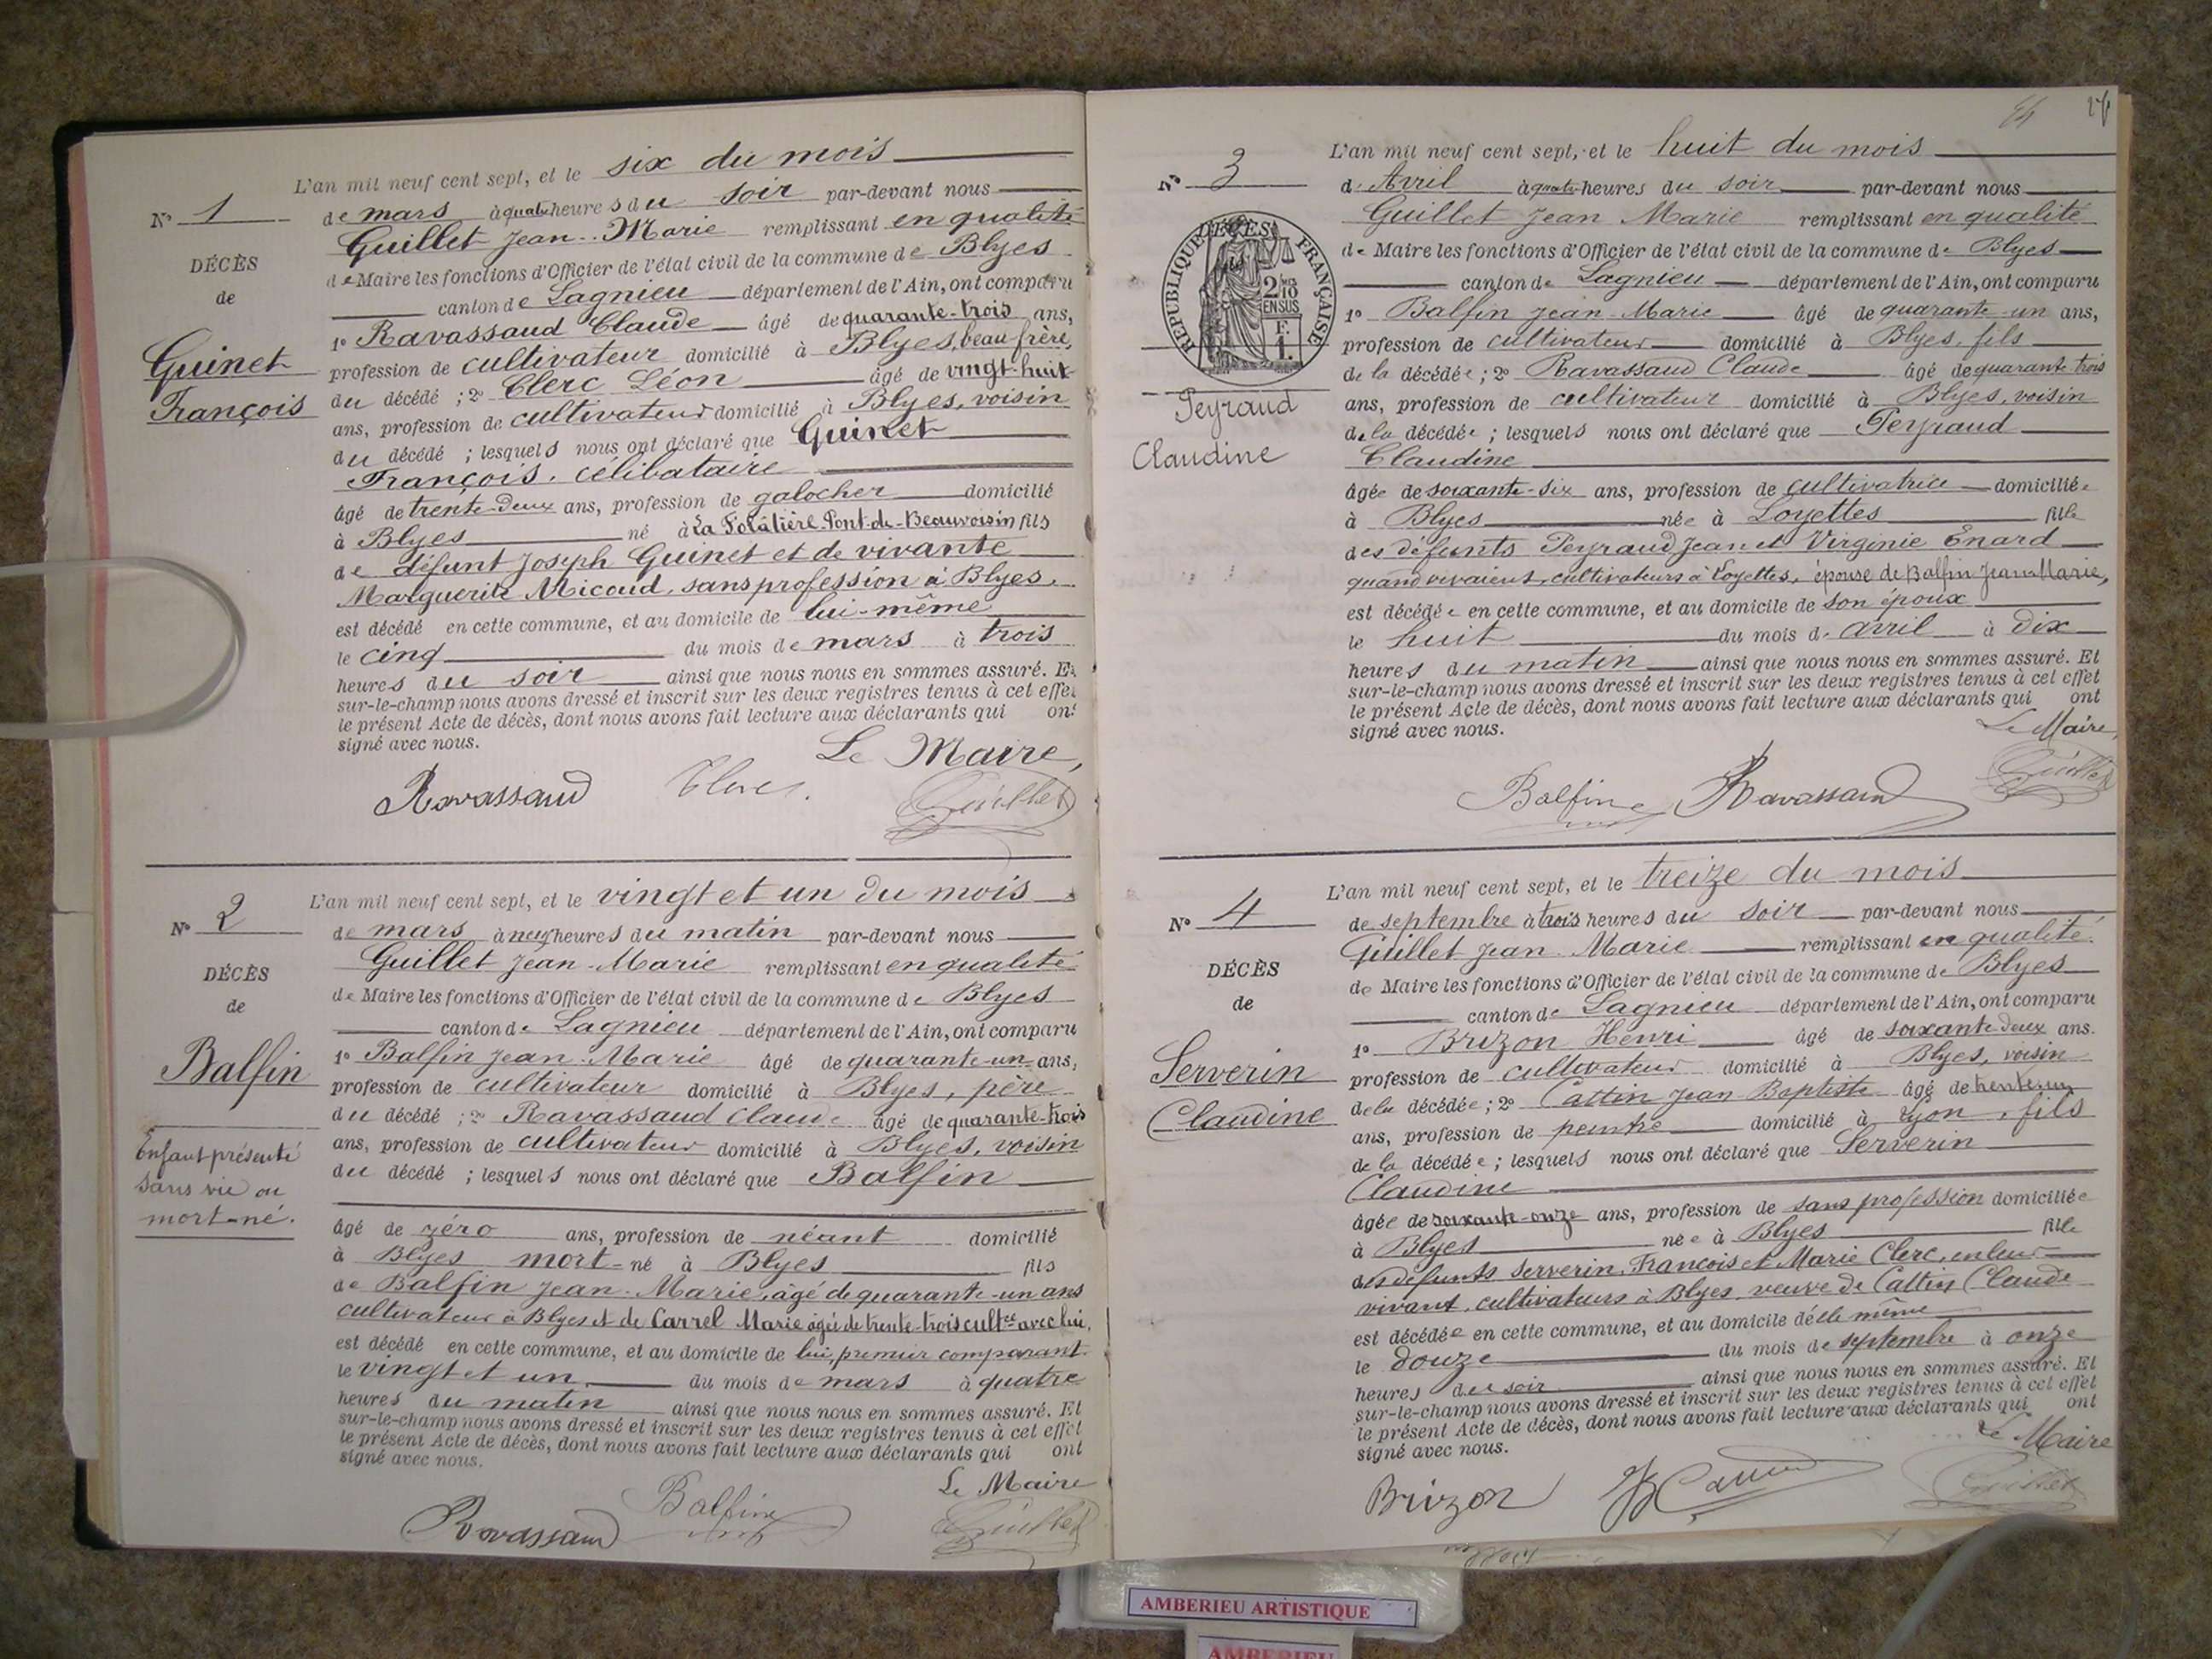 L'an mil neuf cent sept, et le six du mois
N° 1 de mars à quatre heures du soir par-devant nous
Guillet Jean-Marie remplissant en qualité
DÉCÈS
de Maire les fonctions d'Officier de l'état civil de la commune de Blyes
de
canton de Lagnieu département de l'Ain, ont comparu
1° Ravassaud Claude âgé de quarante-trois ans,
Guinet
profession de cultivateur domicilié à Blyes, beau frère,
François
du décédé ; 2° Clerc Léon âgé de vingt-huit
ans, profession de cultivateur domicilié à Blyes, voisin
du décédé ; lesquels nous ont déclaré que Guinet
François, célibataire
âgé de trente-deux ans, profession de galocher domicilié
à Blyes né à La Folatière Pont-de-Beauvoisin fils
de défunt Joseph Guinet et de vivante
Marguerite Micoud, sans profession à Blyes,
est décédé en cette commune, et au domicile de lui-même
le cinq du mois de mars à trois
heures du soir ainsi que nous nous en sommes assuré. Et
sur-le-champ nous avons dressé et inscrit sur les deux registres tenus à cet effet
le présent Acte de décès, dont nous avons fait lecture aux déclarants qui ont
signé avec nous.
Le Maire,
Ravassaud Clerc Guillet
L'an mil neuf cent sept, et le vingt et un du mois
N° 2 de mars à neuf heures du matin par-devant nous
Guillet Jean-Marie remplissant en qualité
DÉCÈS
de Maire les fonctions d'Officier de l'état civil de la commune de Blyes
de
canton de Lagnieu département de l'Ain, ont comparu
Balfin
1° Balfin Jean-Marie âgé de quarante-un ans,
profession de cultivateur domicilié à Blyes, père
du décédé ; 2° Ravassaud Claude âgé de quarante-trois
ans, profession de cultivateur domicilié à Blyes, voisin
du décédé ; lesquels nous ont déclaré que Balfin
Enfant présenté
sans vie ou
mort-né.
âgé de zéro ans, profession de néant domicilié
à Blyes mort-né à Blyes fils
de Balfin Jean-Marie, âgé de quarante-un ans
cultivateur à Blyes et de Carrel Marie âgée de trente-trois cultce avec lui,
est décédé en cette commune, et au domicile de lui, premier comparant.
le vingt et un du mois de mars à quatre
heures du matin ainsi que nous nous en sommes assuré. Et
sur-le-champ nous avons dressé et inscrit sur les deux registres tenus à cet effet
le présent Acte de décès, dont nous avons fait lecture aux déclarants qui ont
signé avec nous.
Le Maire
Ravassaud Balfin Guillet
L'an mil neuf cent sept, et le huit du mois
N° 3 d'Avril à quatre heures du soir par-devant nous
Guillet Jean Marie remplissant en qualité
RÉPUBLIQUE FRANÇAISE
DÉCÈS
2/10 EN SUS
F. 1.
de Maire les fonctions d'Officier de l'état civil de la commune de Blyes
canton de Lagnieu département de l'Ain, ont comparu
1° Balfin Jean-Marie âgé de quarante-un ans,
profession de cultivateur domicilié à Blyes, fils
de la décédée ; 2° Ravassaud Claude âgé de quarante trois
Peyraud
ans, profession de cultivateur domicilié à Blyes, voisin
de la décédée ; lesquels nous ont déclaré que Peyraud
Claudine
Claudine
âgée de soixante-six ans, profession de cultivatrice domiciliée
à Blyes née à Loyettes fille
des défunts Peyraud Jean et Virginie Enard
quand vivaient, cultivateurs à Loyettes, épouse de Balfin Jean-Marie,
est décédée en cette commune, et au domicile de son époux
le huit du mois d'avril à dix
heures du matin ainsi que nous nous en sommes assuré. Et
sur-le-champ nous avons dressé et inscrit sur les deux registres tenus à cet effet
le présent Acte de décès, dont nous avons fait lecture aux déclarants qui ont
signé avec nous.
Le Maire,
Balfin Ravassaud Guillet
L'an mil neuf cent sept, et le treize du mois
N° 4 de septembre à trois heures du soir par-devant nous
Guillet Jean-Marie remplissant en qualité
DÉCÈS
de Maire les fonctions d'Officier de l'état civil de la commune de Blyes
de
canton de Lagnieu département de l'Ain, ont comparu
1° Brizon Henri âgé de soixante deux ans.
Serverin
profession de cultivateur domicilié à Blyes, voisin
Claudine
de la décédée ; 2° Cattin Jean Baptiste âgé de trente-un
ans, profession de peintre domicilié à Lyon, fils
de la décédée ; lesquels nous ont déclaré que Serverin
Claudine
âgée de soixante-onze ans, profession de sans profession domiciliée
à Blyes née à Blyes fille
des défunts Serverin, François et Marie Clerc, en leur
vivant, cultivateurs à Blyes, veuve de Cattin Claude
est décédée en cette commune, et au domicile d'elle même
le douze du mois de septembre à onze
heures du soir ainsi que nous nous en sommes assuré. Et
sur-le-champ nous avons dressé et inscrit sur les deux registres tenus à cet effet
le présent Acte de décès, dont nous avons fait lecture aux déclarants qui ont
signé avec nous.
Le Maire
Brizon Guillet
AMBERIEU ARTISTIQUE
AMBERIEU